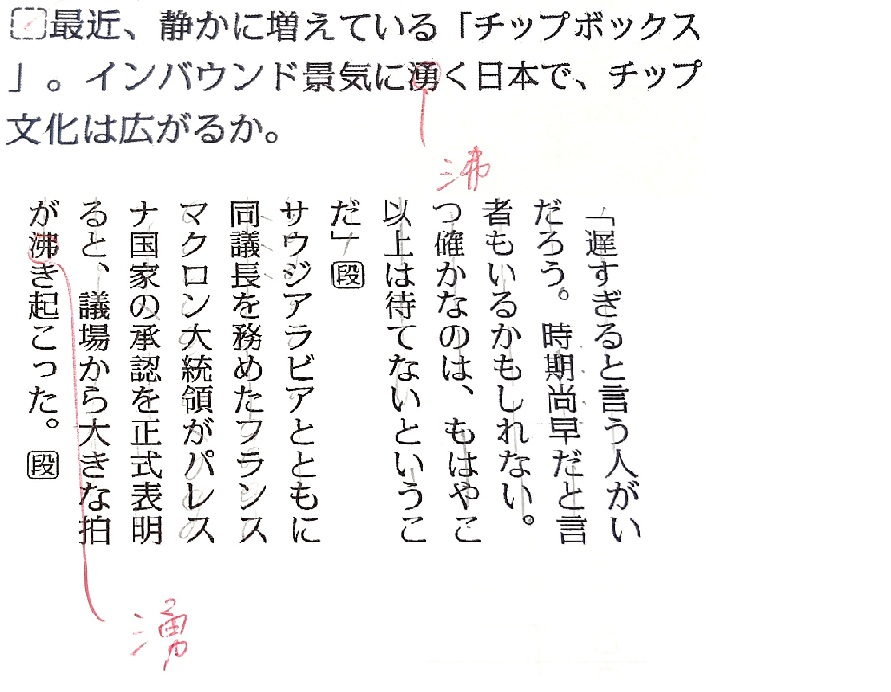 最近、静かに増えている「チップボックス
」。インバウンド景気に湧く日本で、チップ
文化は広がるか。
沸
「遅すぎると言う人がい
だろう。時期尚早だと言
者もいるかもしれない。
つ確かなのは、もはやこ
以上は待てないというこ
だ」段
サウジアラビアとともに
同議長を務めたフランス
マクロン大統領がパレス
ナ国家の承認を正式表明
ると、議場から大きな拍
が沸き起こった。段
湧